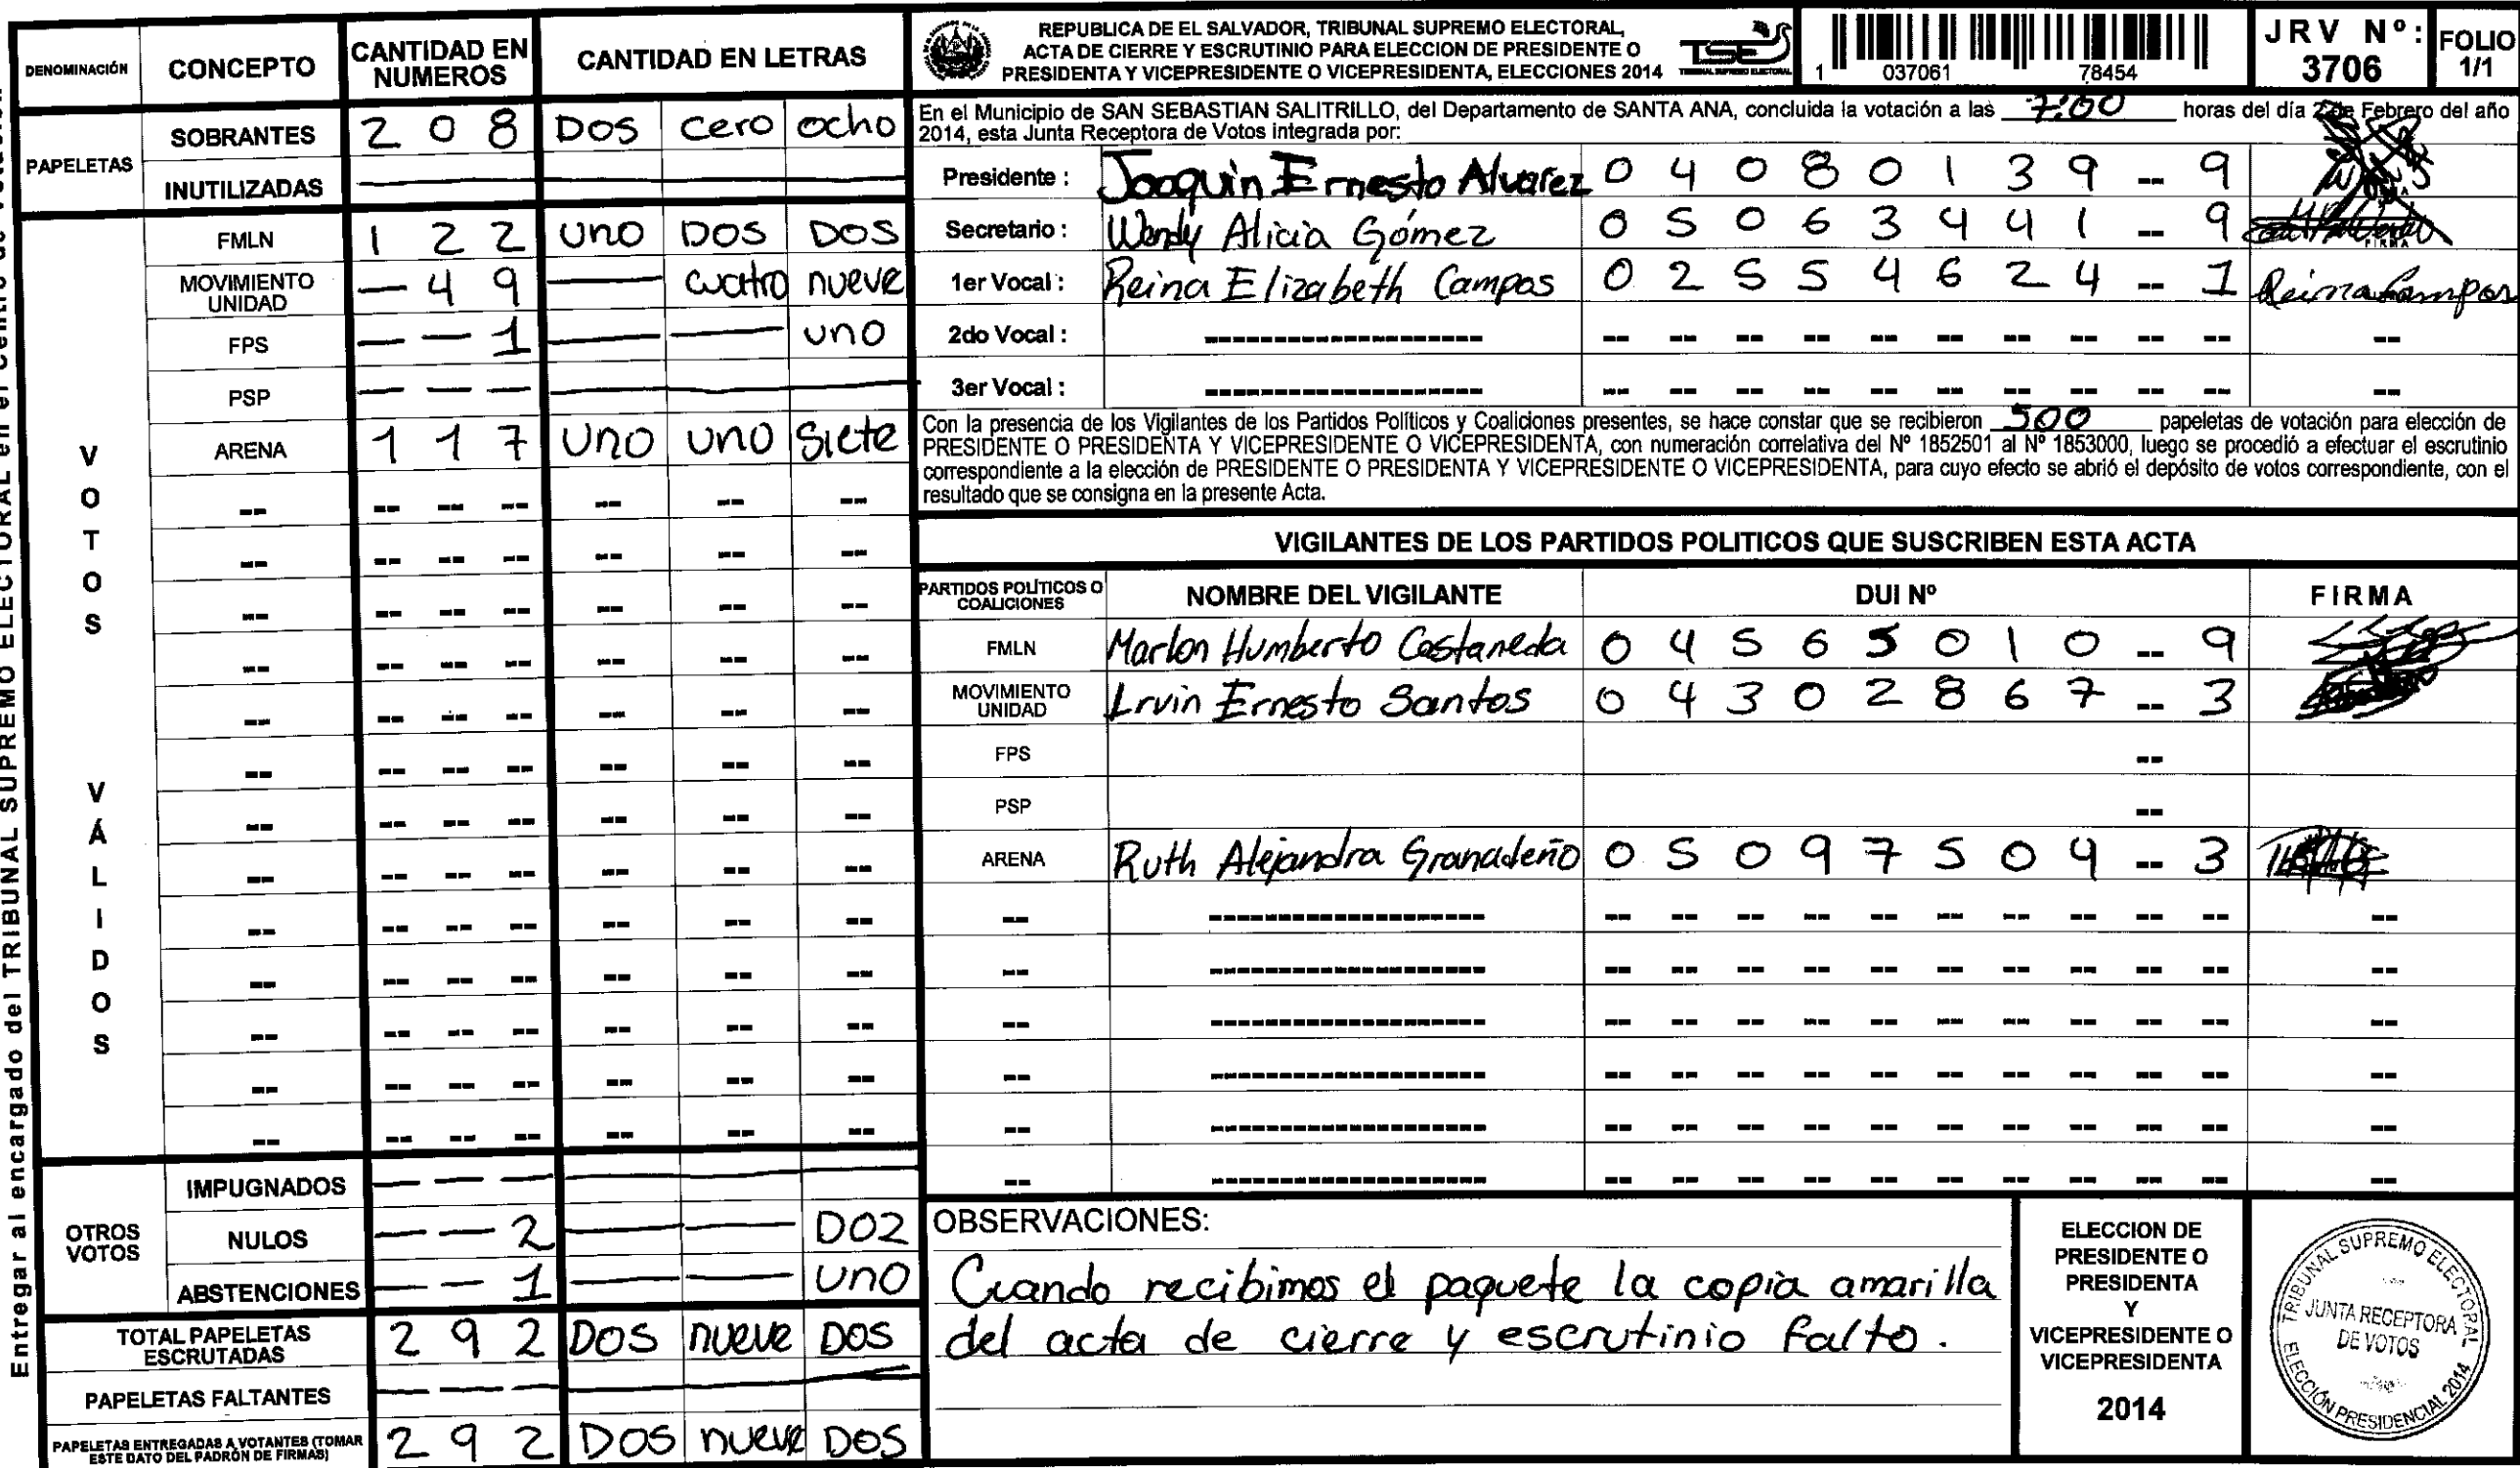 Entregar al encargado del TRIBUNAL SUPREMO ELECTORAL en el Centro de
DENOMINACIÓN CONCEPTO CANTIDAD EN NUMEROS CANTIDAD EN LETRAS
PAPELETAS
SOBRANTES 2 0 8 DOS cero ocho
INUTILIZADAS
VOTOS VÁLIDOS
FMLN 1 2 2 UNO DOS DOS
MOVIMIENTO UNIDAD — 4 9 — cuatro nueve
FPS — — 1 — — uno
PSP — — —
ARENA 1 1 7 UNO UNO Siete
OTROS VOTOS
IMPUGNADOS — — —
NULOS — — 2 — — DO2
ABSTENCIONES — — 1 — — UNO
TOTAL PAPELETAS ESCRUTADAS 2 9 2 DOS nueve DOS
PAPELETAS FALTANTES — — —
PAPELETAS ENTREGADAS A VOTANTES (TOMAR ESTE DATO DEL PADRÓN DE FIRMAS) 2 9 2 DOS nueve DOS
REPUBLICA DE EL SALVADOR, TRIBUNAL SUPREMO ELECTORAL,
ACTA DE CIERRE Y ESCRUTINIO PARA ELECCION DE PRESIDENTE O
PRESIDENTA Y VICEPRESIDENTE O VICEPRESIDENTA, ELECCIONES 2014
TSE
TRIBUNAL SUPREMO ELECTORAL
1 037061 78454
JRV Nº: 3706
FOLIO 1/1
En el Municipio de SAN SEBASTIAN SALITRILLO, del Departamento de SANTA ANA, concluida la votación a las 7:00 horas del día 2 de Febrero del año
2014, esta Junta Receptora de Votos integrada por:
Presidente : Joaquin Ernesto Alvarez 0 4 0 8 0 1 3 9 -- 9
Secretario : Wendy Alicia Gómez 0 5 0 6 3 4 4 1 -- 9 FIRMA
1er Vocal : Reina Elizabeth Campos 0 2 5 5 4 6 2 4 -- 1 Reina Campos
2do Vocal : -- -- -- -- -- -- -- -- -- -- --
3er Vocal : -- -- -- -- -- -- -- -- -- -- --
Con la presencia de los Vigilantes de los Partidos Políticos y Coaliciones presentes, se hace constar que se recibieron 500 papeletas de votación para elección de
PRESIDENTE O PRESIDENTA Y VICEPRESIDENTE O VICEPRESIDENTA, con numeración correlativa del Nº 1852501 al Nº 1853000, luego se procedió a efectuar el escrutinio
correspondiente a la elección de PRESIDENTE O PRESIDENTA Y VICEPRESIDENTE O VICEPRESIDENTA, para cuyo efecto se abrió el depósito de votos correspondiente, con el
resultado que se consigna en la presente Acta.
VIGILANTES DE LOS PARTIDOS POLITICOS QUE SUSCRIBEN ESTA ACTA
PARTIDOS POLÍTICOS O COALICIONES NOMBRE DEL VIGILANTE DUI Nº FIRMA
FMLN Marlon Humberto Castaneda 0 4 5 6 5 0 1 0 -- 9
MOVIMIENTO UNIDAD Irvin Ernesto Santos 0 4 3 0 2 8 6 7 -- 3
FPS --
PSP --
ARENA Ruth Alejandra Granadeño 0 5 0 9 7 5 0 4 -- 3
OBSERVACIONES:
Cuando recibimos el paquete la copia amarilla
del acta de cierre y escrutinio falto.
ELECCION DE
PRESIDENTE O
PRESIDENTA
Y
VICEPRESIDENTE O
VICEPRESIDENTA
2014
TRIBUNAL SUPREMO ELECTORAL
JUNTA RECEPTORA
DE VOTOS
ELECCIÓN PRESIDENCIAL 2014